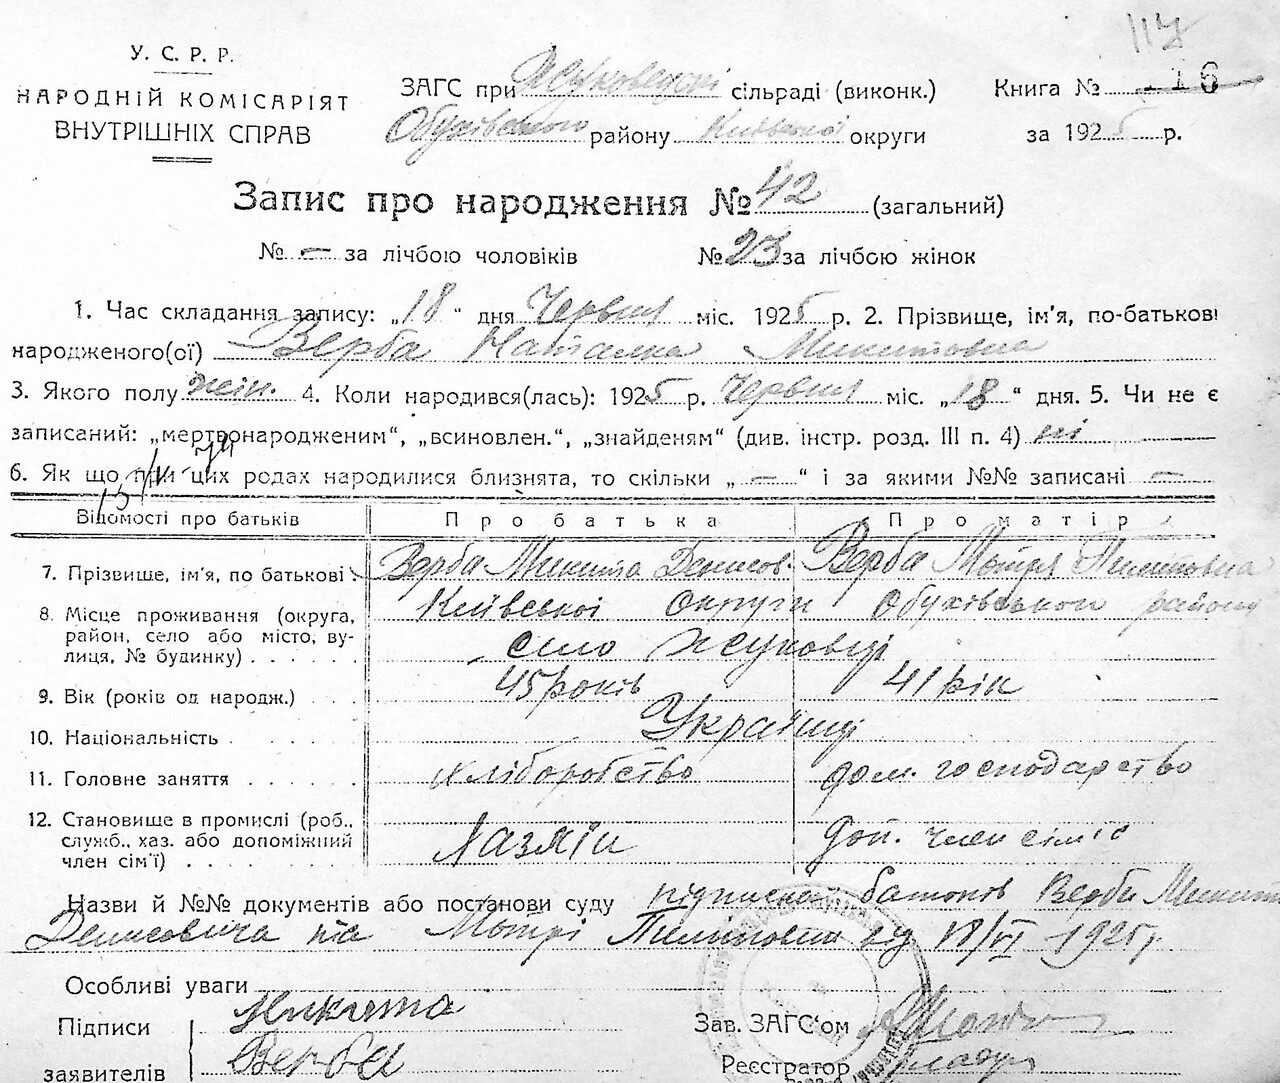 117
У. С. Р. Р.
НАРОДНІЙ КОМІСАРІЯТ
ВНУТРІШНІХ СПРАВ
ЗАГС при Жуковецькі сільраді (виконк.)
Обухівського району Київської округи
Книга № 16
за 1925 р.
Запис про народження № 42 (загальний)
№ — за лічбою чоловіків № 23 за лічбою жінок
1. Час складання запису: „18“ дня Червня міс. 1925 р. 2. Прізвище, ім'я, по-батькові
народженого(ої) Верба Наталка Микитовна
3. Якого полу жін. 4. Коли народився(лась): 1925 р. Червня міс. „18“ дня. 5. Чи не є
записаний: „мертвонародженим“, „всиновлен.“, „знайденям“ (див. інстр. розд. III п. 4) ні
6. Як що при цих родах народилися близнята, то скільки „—“ і за якими №№ записані —
Відомості про батьків Про батька Про матір
7. Прізвище, ім'я, по батькові Верба Микита Денисов. Верба Мотря Пилиповна
8. Місце проживання (округа, Київської округи Обухівського району
район, село або місто, ву- село Жуковці
лиця, № будинку)
9. Вік (років од народж.) 45 років 41 рік
10. Національність Українці
11. Головне заняття хліборобство дом. господарство
12. Становище в промислі (роб.,
служб., хаз. або допоміжний хазяїн доп. член сім'ї
член сім'ї)
Назви й №№ документів або постанови суду підписка батьків Верби Микити
Денисовича та Мотрі Пилиповни від 18/VI 1925 р.
Особливі уваги
Підписи Микита
заявителів Верба
Зав. ЗАГС'ом
Реєстратор